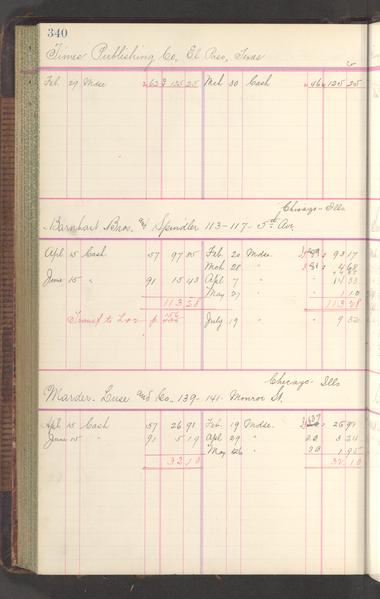 340
Times Publishing Co, El Paso, Texas
Feb 27 Mdse 125 25 Mch 30 Cash 46 125 25
Chicago - Ills
Barnhart Bros. and Spindler 113-117-5th Ave
Apl 15 Cash 57 97 85 Feb. 20 Mdse. 93 17
Mch 28 "
June 15 " 91 15 43 Apl 7 "
May 27 " 1 10
113 28 113 28
Transf to L-2 p July 19 " " 9 32
Chicago - Ills
Marder. Luse and Co. 139-141- Monroe St.
Apl 15 Cash 57 26 91 Feb. 19 Mdse. 26 91
June 15 " 91 5 19 Apl 29 " 20 3 24
May 26 " 30 1 95
32 10 32 10